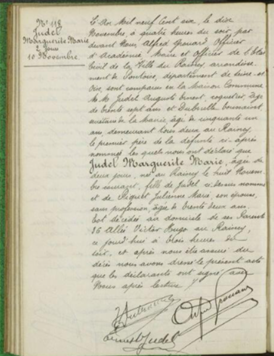 Nº 118
Judel
Marguerite Marie
2 jours
10 Novembre
L'An Mil neuf Cent six, le dix
Novembre, à quatre heures du soir, par
devant Nous Alfred Officier
d'Académie, Maire et Officier de l'État
Civil de la Ville du Raincy, arrondisse
ment de Pontoise, département de Seine et
Oise, sont comparus en la Maison Commune
M.M. Judel Auguste Ernest,
de trente sept ans et
de la Mairie, âgé de cinquante un
ans demeurant tous deux au Raincy
le premier père de la défunte ci après
nommée, lesquels nous ont déclaré que
Judel Marguerite Marie, âgée de
deux jours, née au Raincy le huit Novem
bre courant, fille de Judel susnommé
et de Julienne Marie, son épouse,
sans profession, âgée de trente deux ans,
Est décédée au domicile de ses Parents
38 Allée Victor Hugo au Raincy,
aujourd'hui à trois heures du
soir, et après nous être assuré du
décès nous avons dressé le présent acte
que les déclarants ont signé avec
Nous après lecture
Ernest Judel